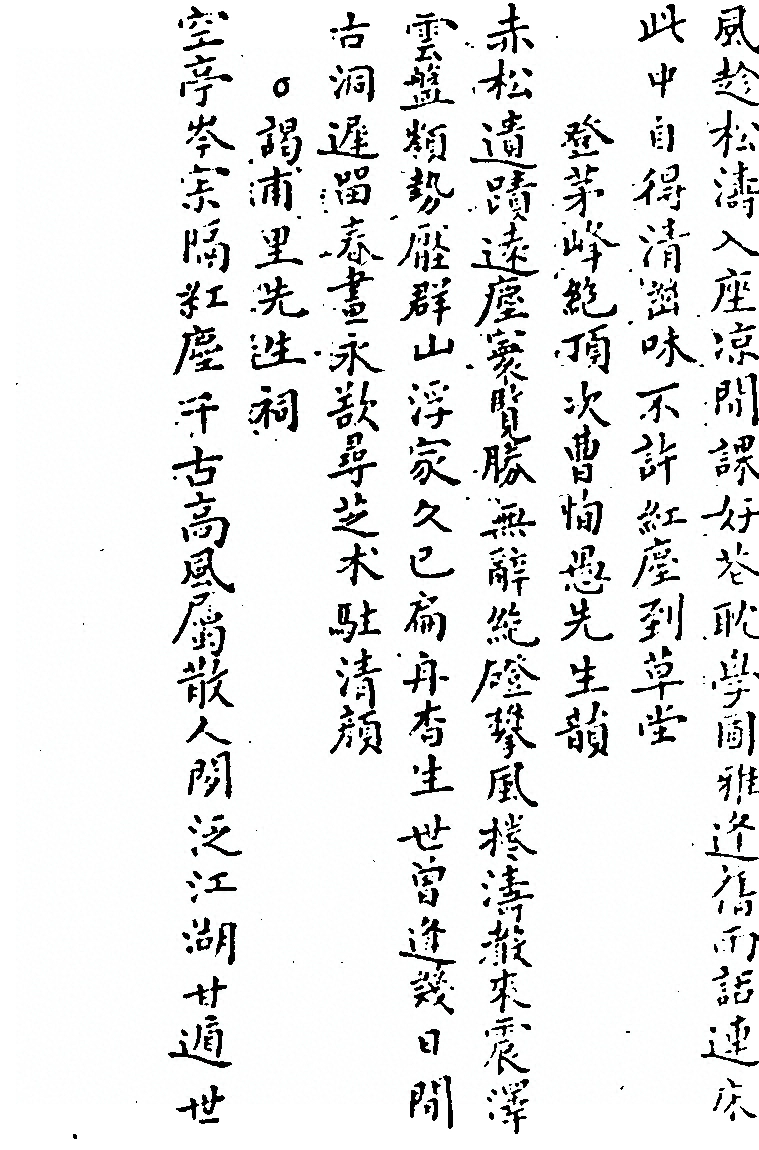 風趁松濤入座凉閒課好花耽學圃雅逢舊雨話連床
此中自得清幽味不許紅塵到草堂
登茅峰絶頂次曹恂愚先生韻
赤松遺蹟遠塵寰覽勝無辭絶磴攀風捲濤聲來震澤
雲盤頮勢壓群山浮家久已扁舟杳生世曾逢幾日閒
古洞遲留春晝永欲尋芝术駐清顔
謁甫里先生祠
空亭岑寂隔紅塵千古高風屬散人閒泛江湖甘遁世